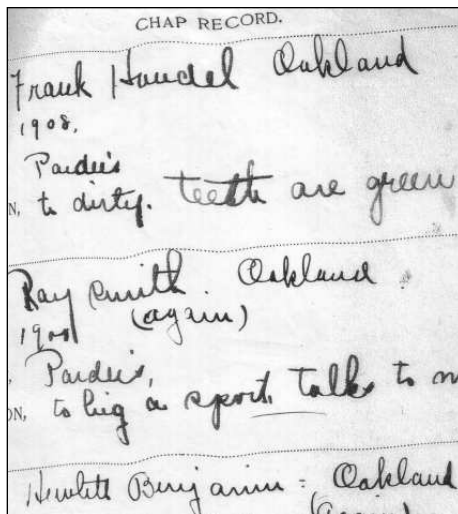 CHAP RECORD.
Frank Handel Oakland
1908.
Pardee's
N, to dirty. teeth are green
Ray Smith. Oakland
(again)
1908
, Pardee's,
ON, to big a sport. talks to m
Hewlett Benjamin = Oakland
(again)